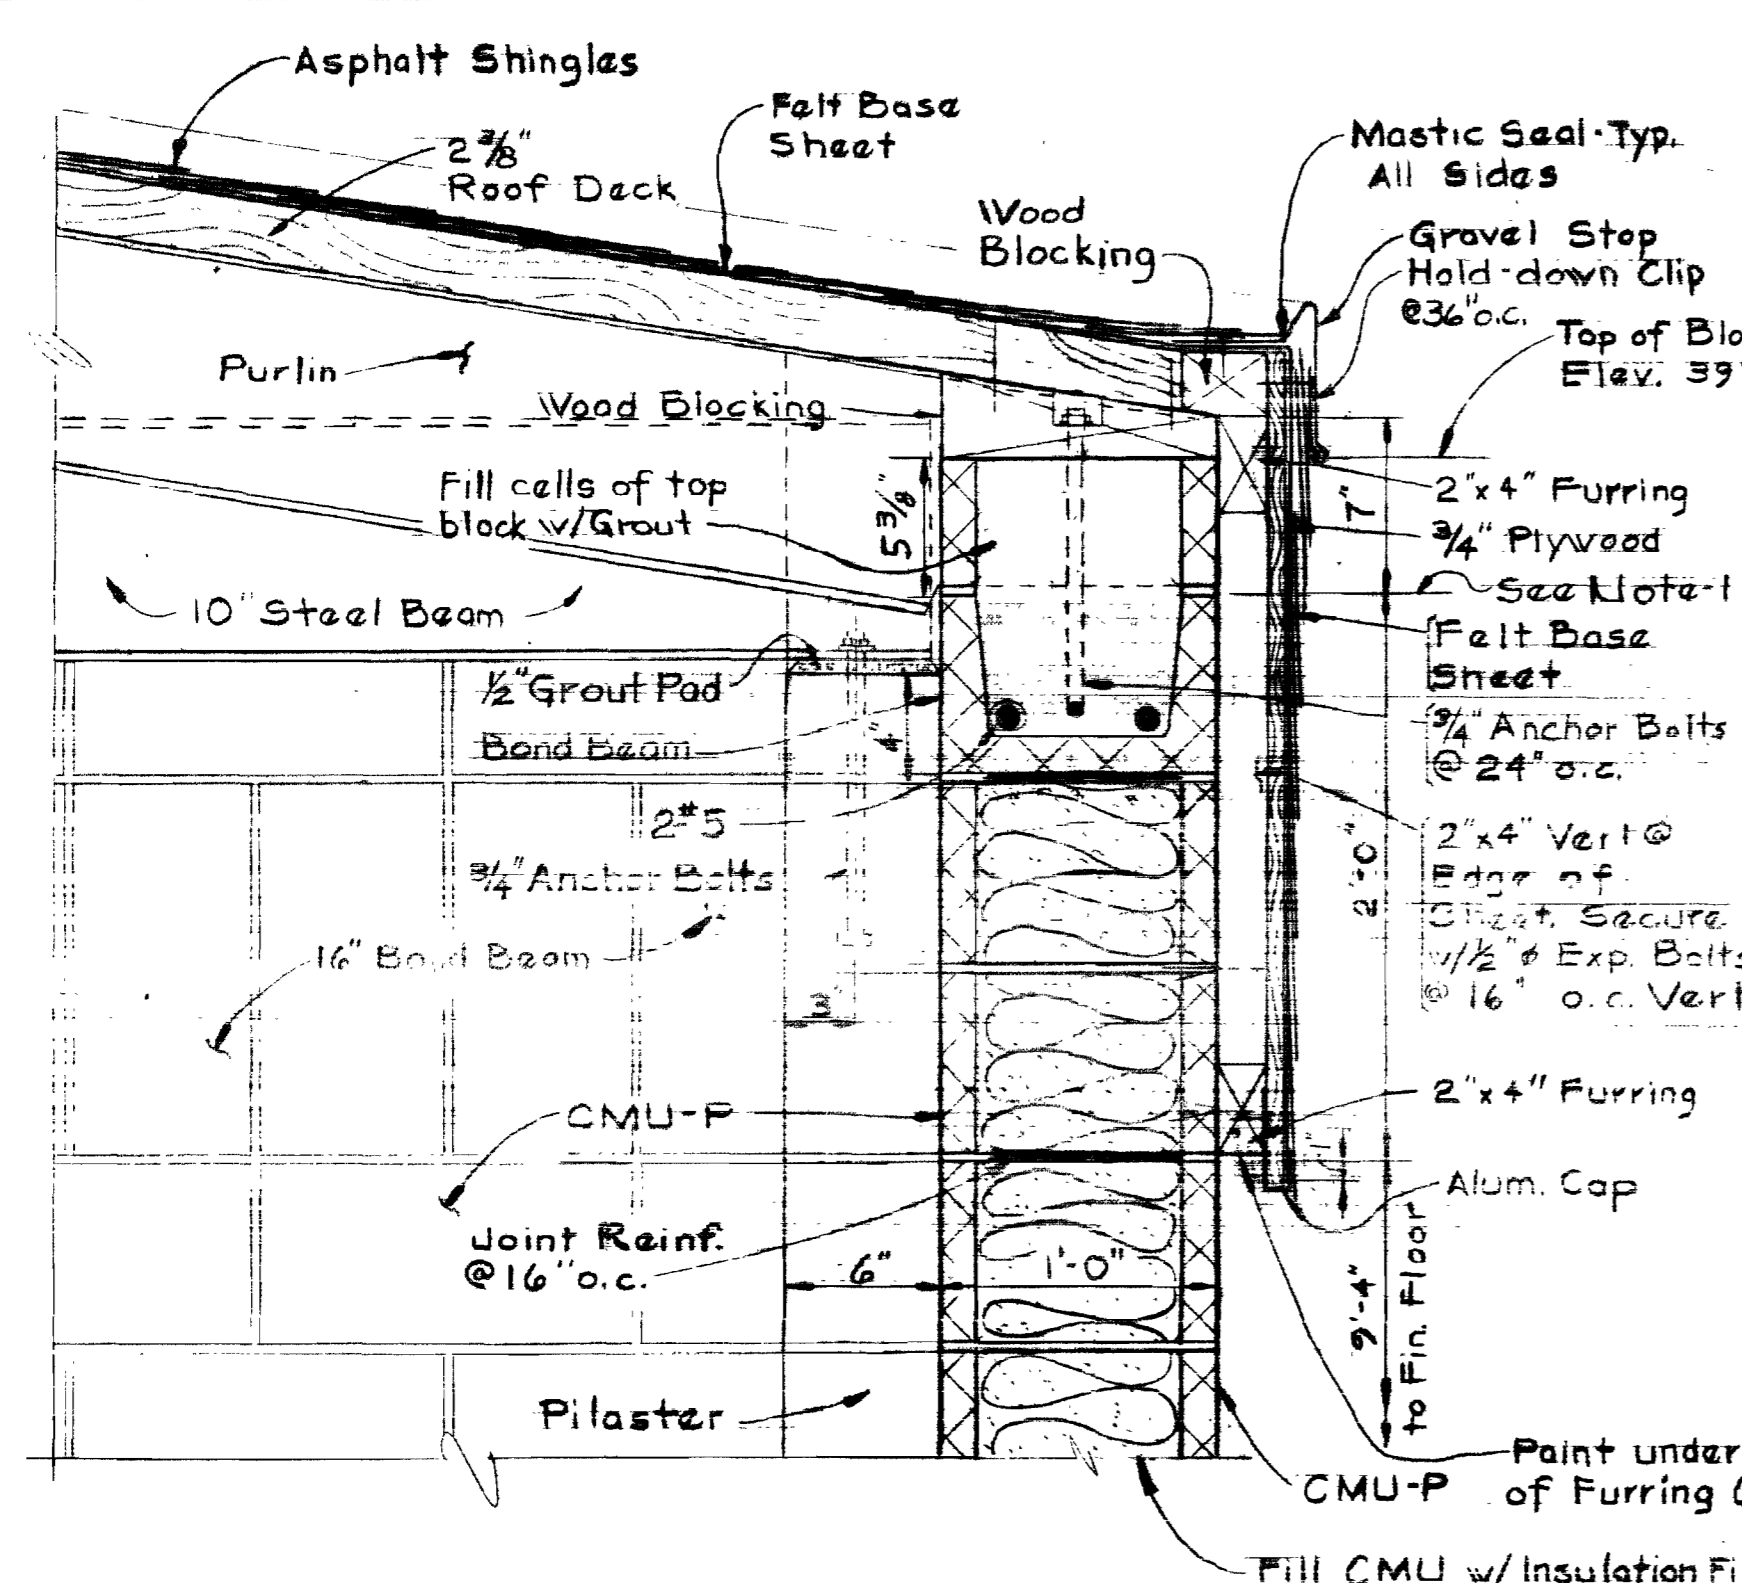 Asphalt Shingles
Felt Base
Sheet
2 3/8"
Roof Deck
Mastic Seal-Typ.
All Sides
Wood
Blocking
Gravel Stop
Hold-down Clip
@36"o.c.
Top of Blo
Elev. 39'
Purlin
Wood Blocking
Fill cells of top
block w/Grout
5 3/8"
7"
2"x4" Furring
3/4" Plywood
See Note-1
10" Steel Beam
Felt Base
Sheet
1/2" Grout Pad
Bond Beam
4"
3/4" Anchor Bolts
@ 24" o.c.
2#5
3/4" Anchor Bolts
2'-0"
2"x4" Vert @
Edge of
Sheet. Secure
w/1/2"ø Exp. Bolts
@ 16" o.c. Vert
16" Bond Beam
3"
CMU-P
2"x4" Furring
Alum. Cap
Joint Reinf.
@16"o.c.
6"
1'-0"
9'-4"
to Fin. Floor
Pilaster
Paint under
of Furring
CMU-P
Fill CMU w/ Insulation Fi